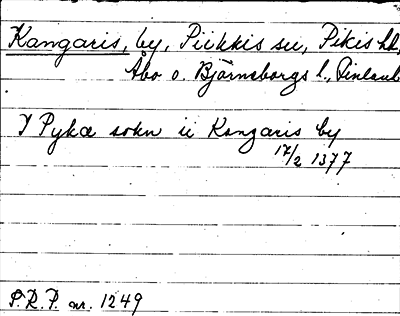 Kangaris, by, Piikkis sn, Pikis hd,
Åbo o. Björneborgs l., Finland
I Pykæ sokn ii Kangaris by
17/2 1377
S.R.P. nr. 1249